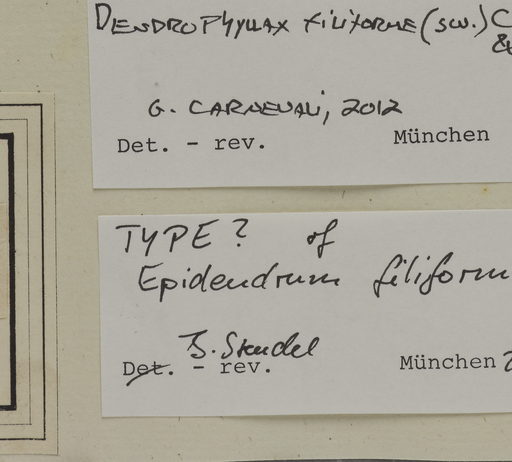 DENDROPHYLLAX FILIFORME (SW.) C
&
G. CARNEVALI, 2012
Det. - rev. München
TYPE? of
Epidendrum filiform
B. Steudel
Det. - rev. München 2